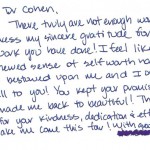 Dr Cohen,
There truly are not enough wo
ess my sincere gratitude for
ork you have done! I feel like
newed sense of self worth ha
bestowed upon me and I o
ll to you! You kept your promis
made me back to beautiful! Th
for your kindness, dedication & eff
ake me come this far! With